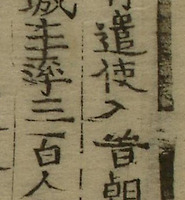 遣使入晋朝
城主率三百人